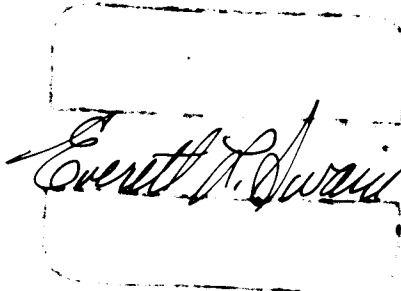 Everett L. Swain